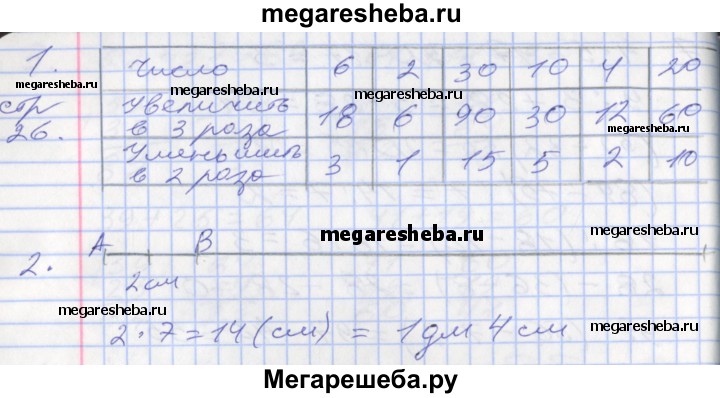 megaresheba.ru
1. Число 6 2 30 10 4 20
megaresheba.ru megaresheba.ru megaresheba.ru
стр 26. Увеличить в 3 роза 18 6 90 30 12 60
megaresheba.ru
Уменьшить в 2 роза 3 1 15 5 2 10
A B
megaresheba.ru megaresheba.ru
2.
2см
megaresheba.ru
2·7=14(см) = 1дм 4см
megaresheba.ru
Мегарешеба.ру